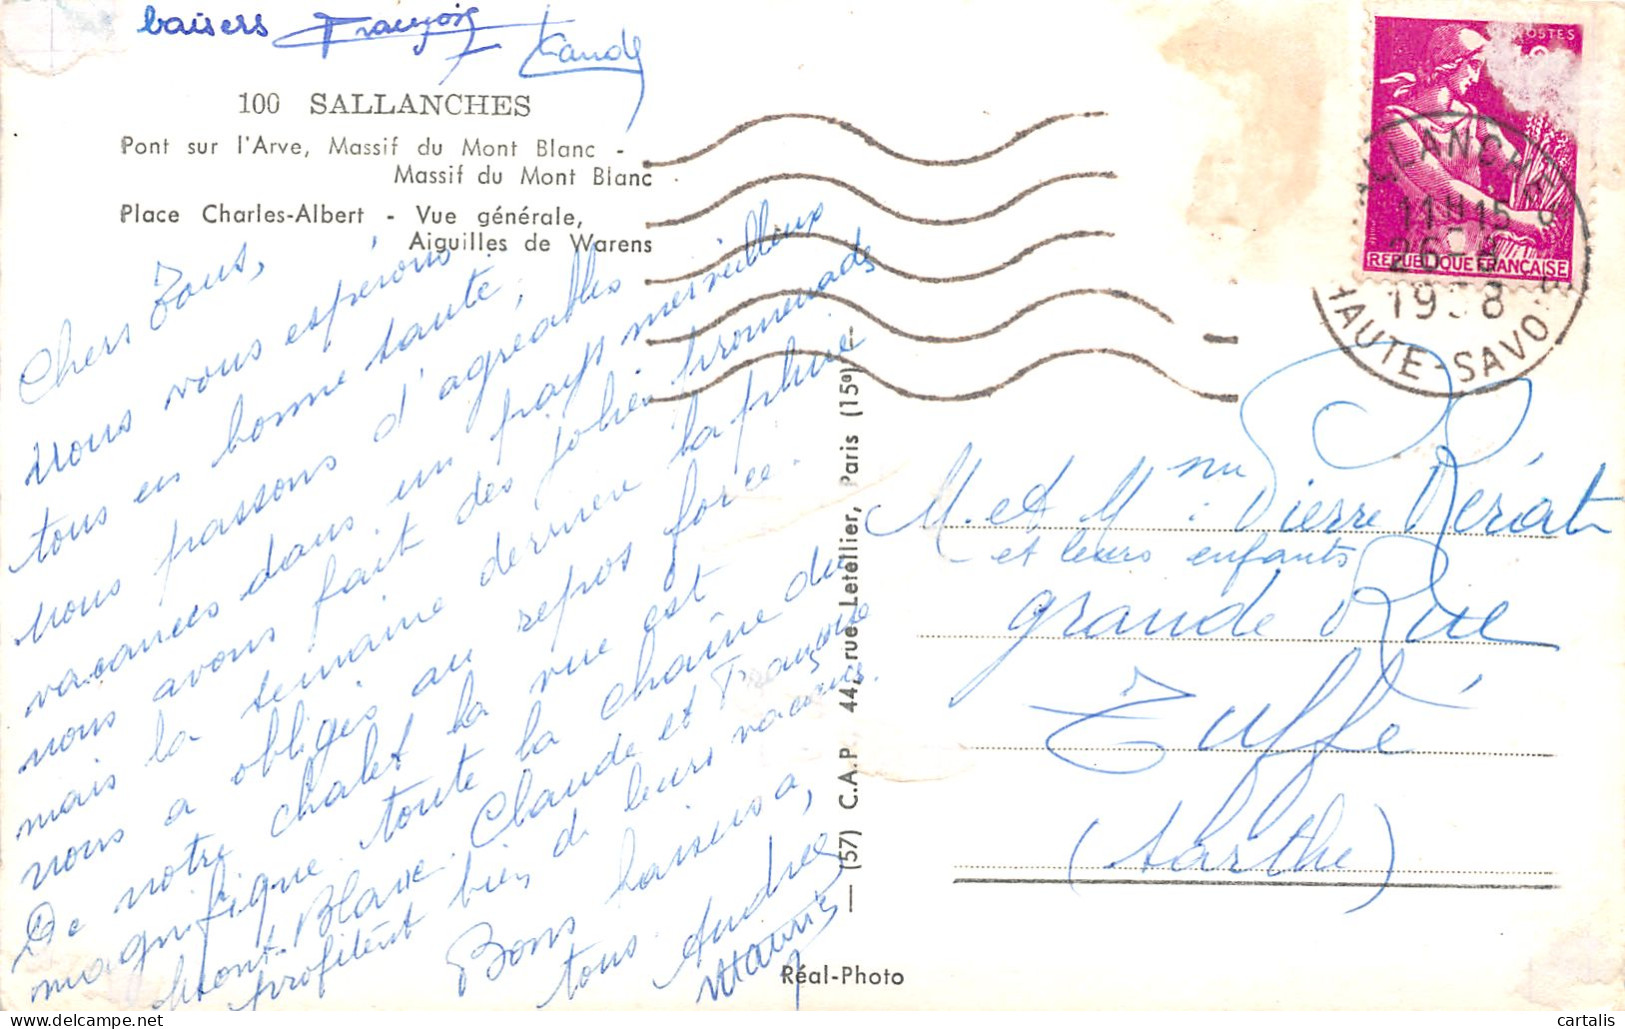 baisers Françoise Claude
100 SALLANCHES
Pont sur l'Arve, Massif du Mont Blanc -
Massif du Mont Blanc
Place Charles-Albert - Vue générale,
Aiguilles de Warens
Chers Tous,
Nous vous espérons
tous en bonne santé,
nous passons d'agréables
vacances dans un pays merveilleux
nous avons fait des jolies promenades
mais la semaine dernière la pluie
nous a obligés au repos forcé.
De notre chalet la vue est
magnifique toute la chaîne du
Mont-Blanc. Claude et Françoise
profitent bien de leurs vacances.
Bons baisers à
tous Andrée
Maurice
(57) C.A.P 44, rue Letellier, Paris (15e)
Réal-Photo
POSTES
REPUBLIQUE FRANÇAISE
SALLANCHES
11H15
26-8
1958
HAUTE-SAVOIE
M. et Mme Pierre Rériat
et leurs enfants
grande Rue
Tuffé
(Sarthe)
cartalis